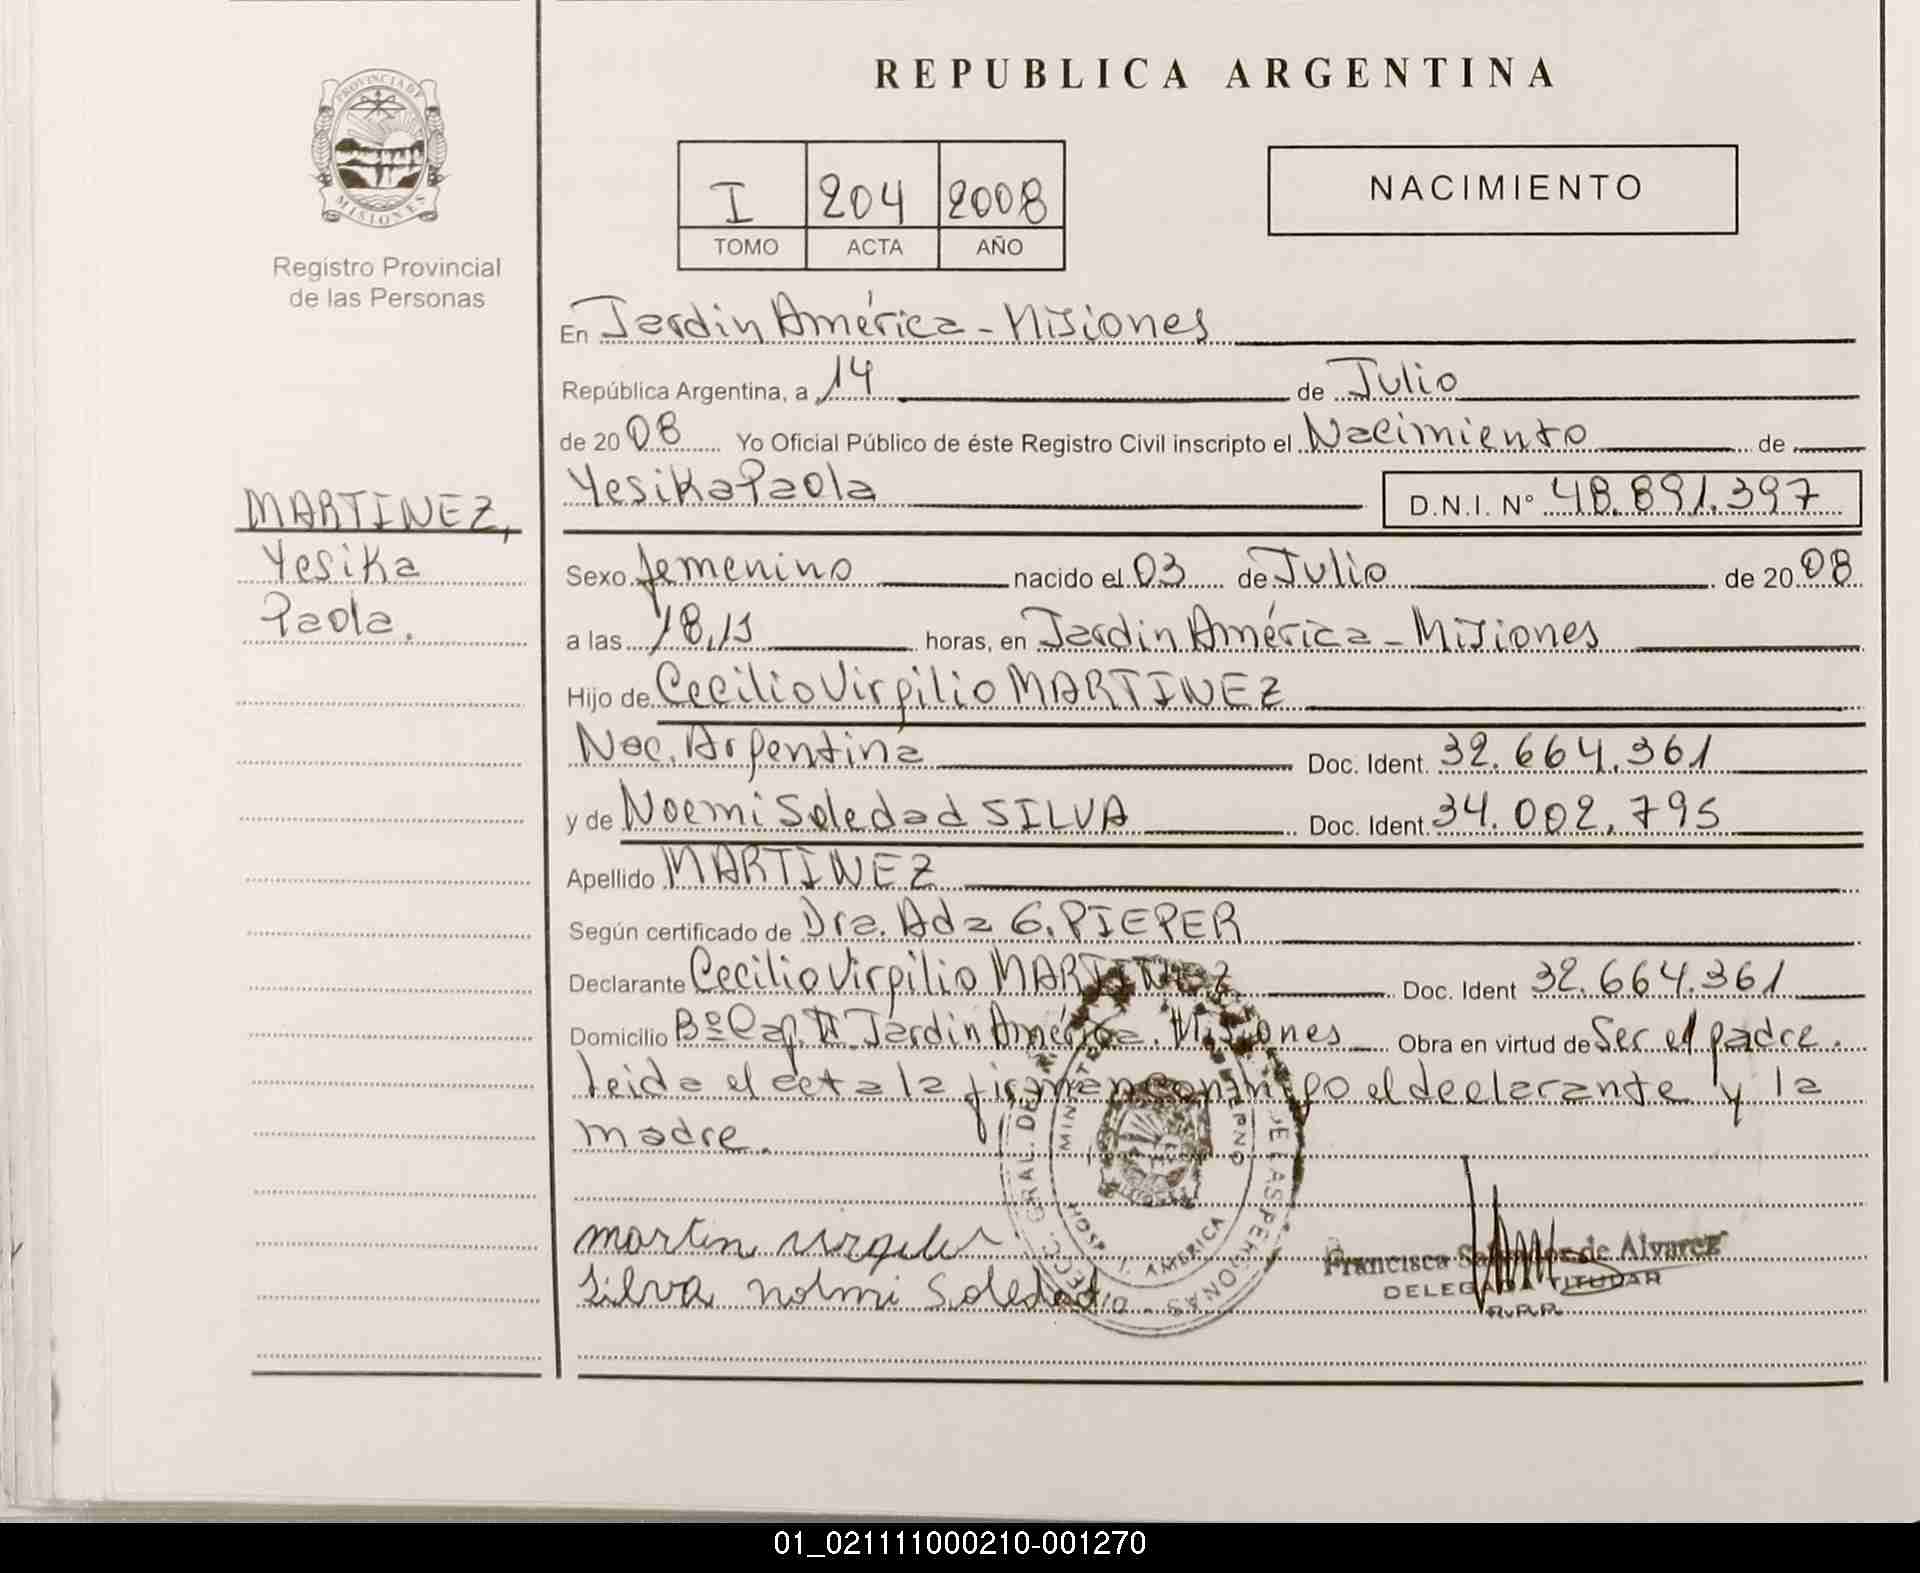 REPUBLICA ARGENTINA
PROVINCIA DE
MISIONES
Registro Provincial
de las Personas
I 204 2008
TOMO ACTA AÑO
NACIMIENTO
En Jardin América - Misiones
República Argentina, a 14 de Julio
de 20 08 Yo Oficial Público de éste Registro Civil inscripto el Nacimiento de
Yesika Paola D.N.I. Nº 48.891.397
MARTINEZ,
Yesika
Paola.
Sexo femenino nacido el 03 de Julio de 20 08
a las 18,15 horas, en Jardin América - Misiones
Hijo de Cecilio Virgilio MARTINEZ
Nac. Argentina Doc. Ident. 32.664.361
y de Noemi Soledad SILVA Doc. Ident. 34.002.795
Apellido MARTINEZ
Según certificado de Dra. Ada G. PIEPER
Declarante Cecilio Virgilio MARTINEZ Doc. Ident 32.664.361
Domicilio Bº Cap. II Jardin América. Misiones Obra en virtud de Ser el padre.
Leida el acta la firman conmigo el declarante y la
madre.
martin
Silva noemi Soledad
Francisca de Alvarez
DELEGADA TITULAR
R.P.P.
DIRECC GRAL. DE LAS PERSONAS
HOSP. J. AMERICA
01_021111000210-001270